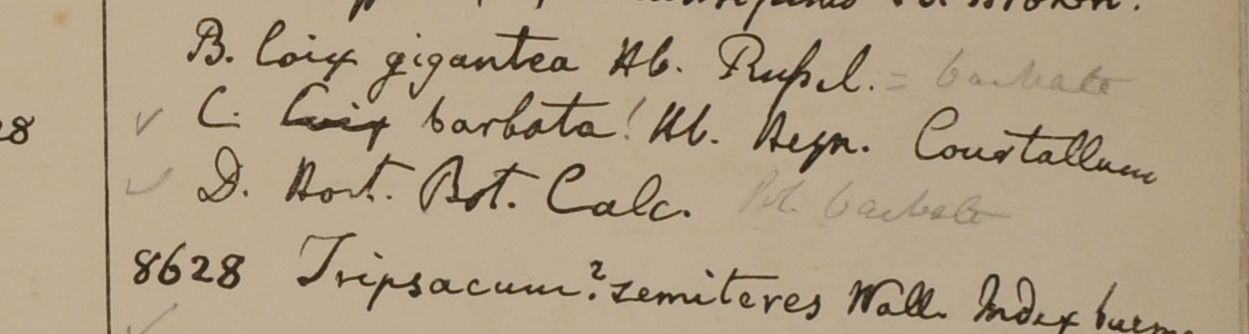 B. Coix gigantea Hb. Rufsel. = barbata
C. Coix barbata! Hb. Heyn. Courtallum
28
D. Hort. Bot. Calc. Pol. barbata
8628 Tripsacum? semiteres Wall. Index burm